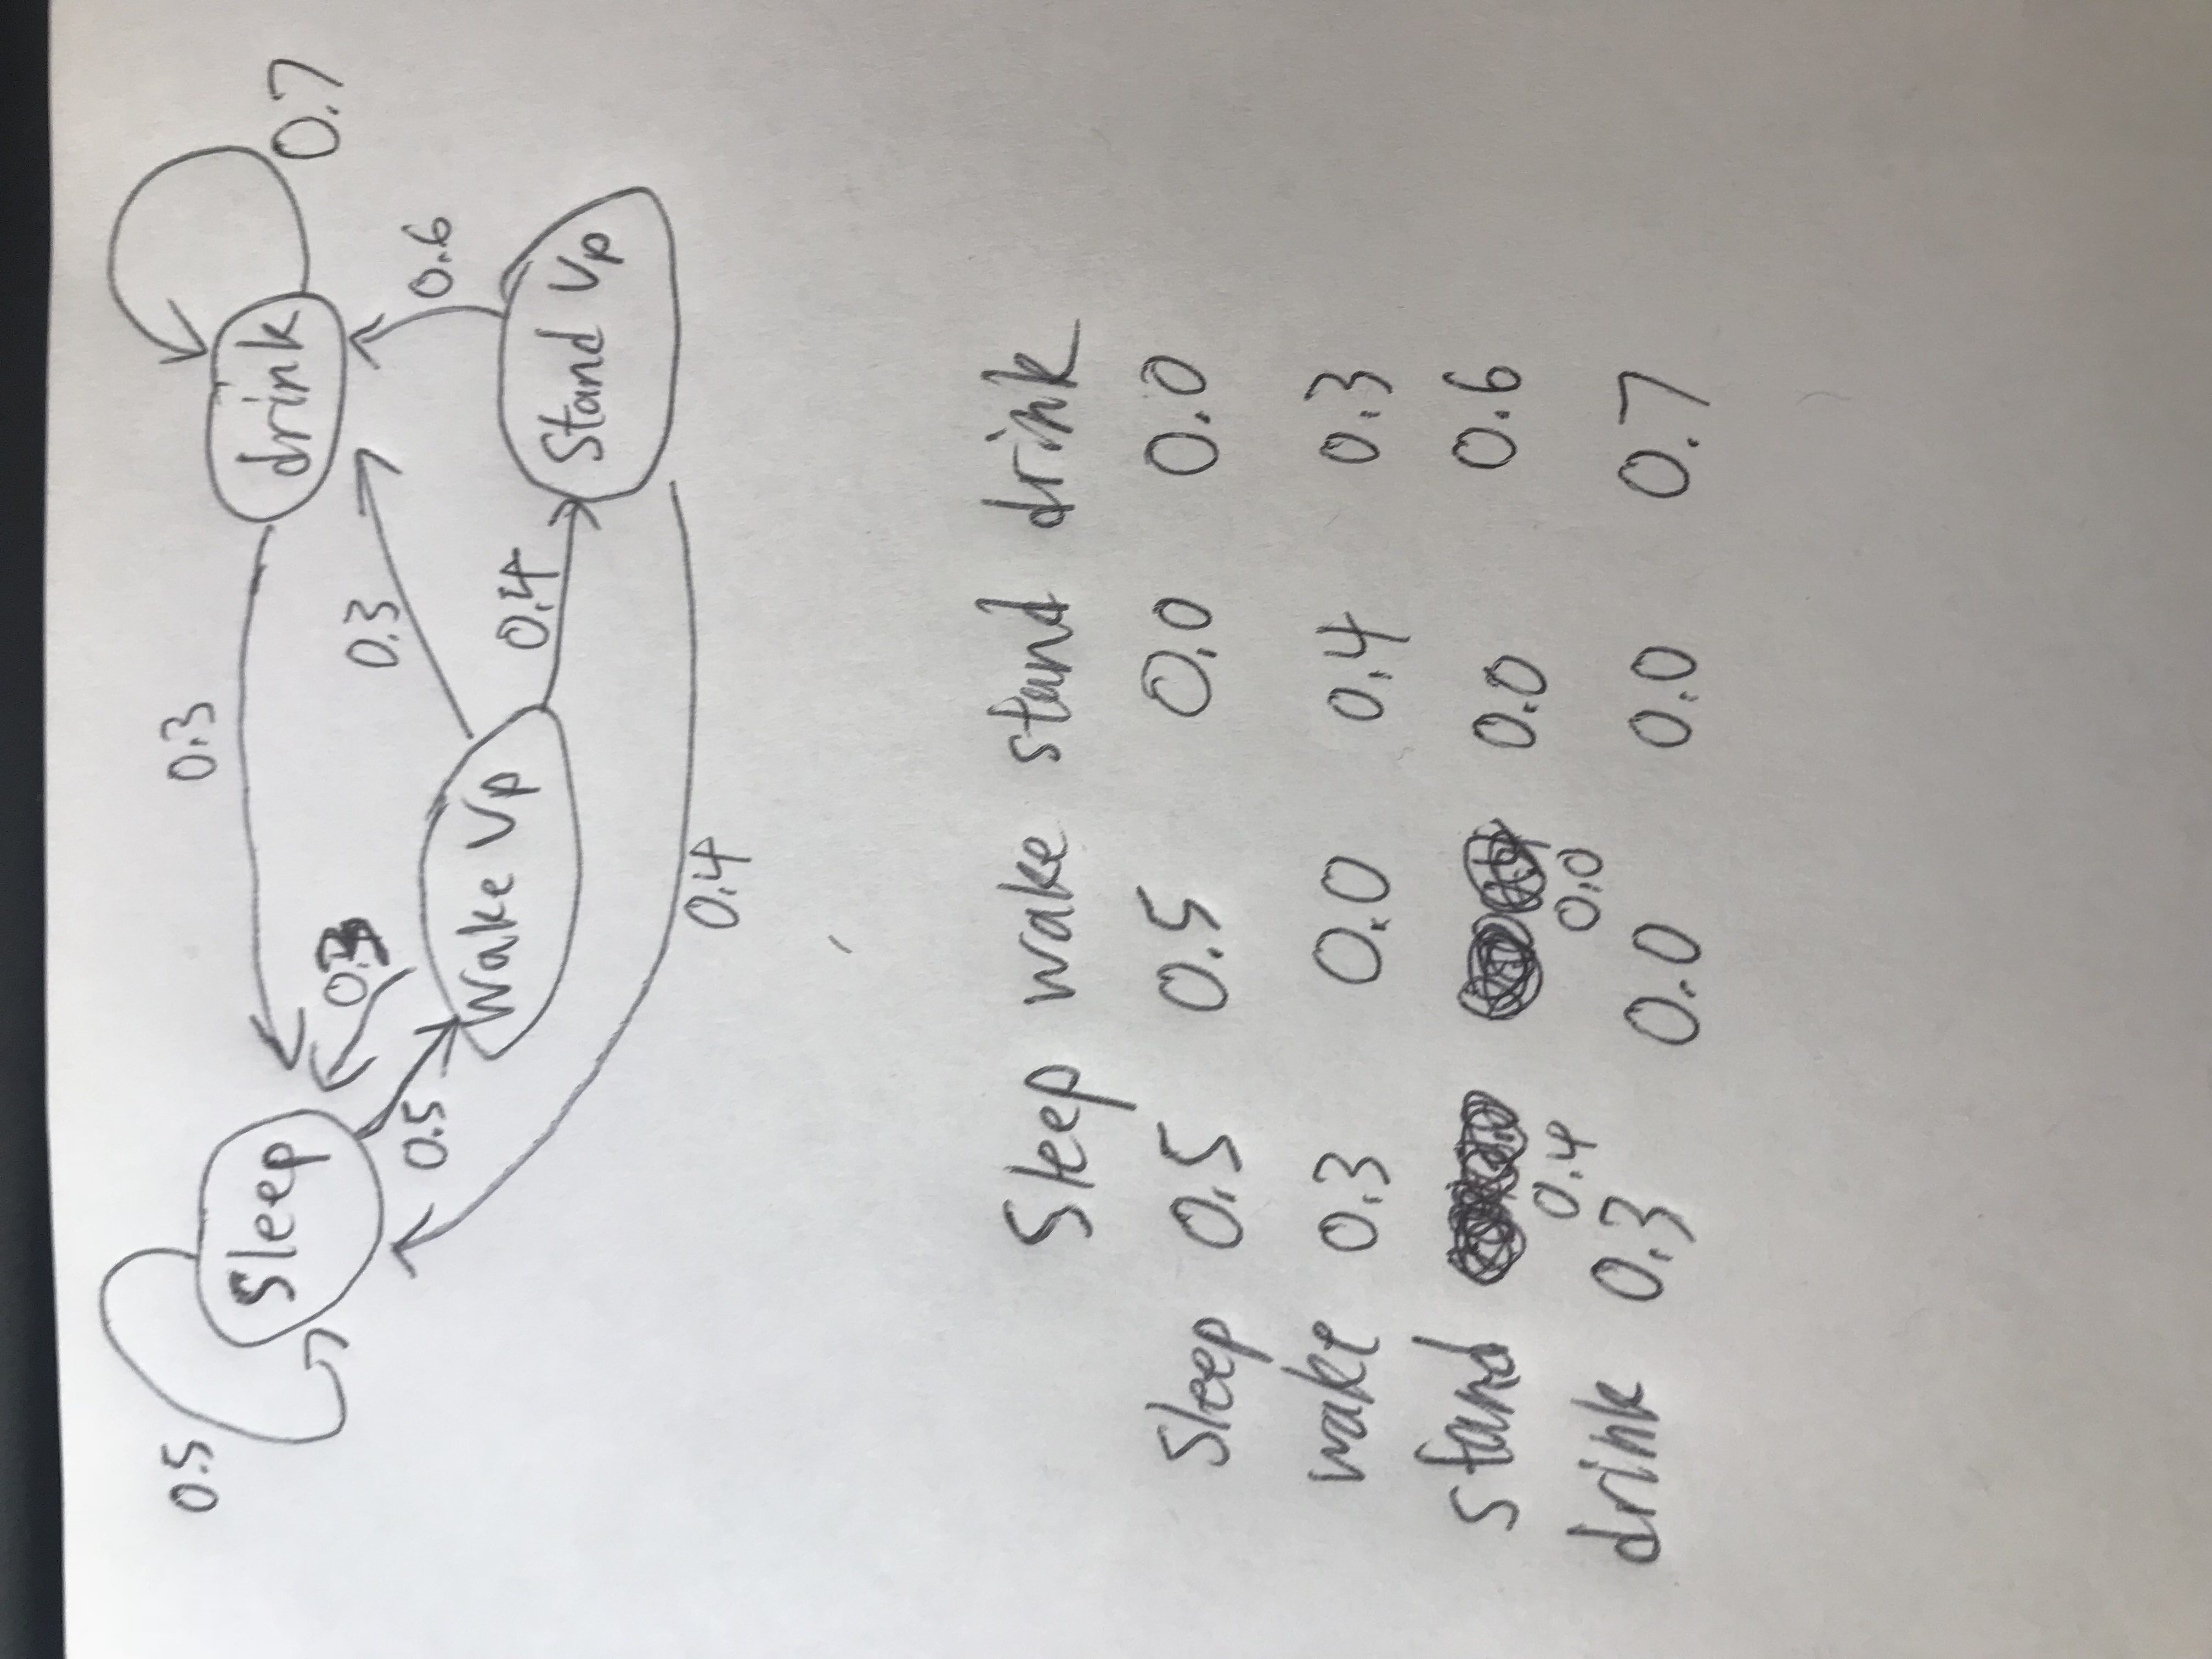 0.5
0.3
Sleep
drink
0.7
0.3
0.3
0.5
0.6
Wake Up
0.4
Stand Up
0.4
Sleep wake stand drink
Sleep 0.5 0.5 0.0 0.0
wake 0.3 0.0 0.4 0.3
stand 0.4 0.0 0.0 0.6
drink 0.3 0.0 0.0 0.7